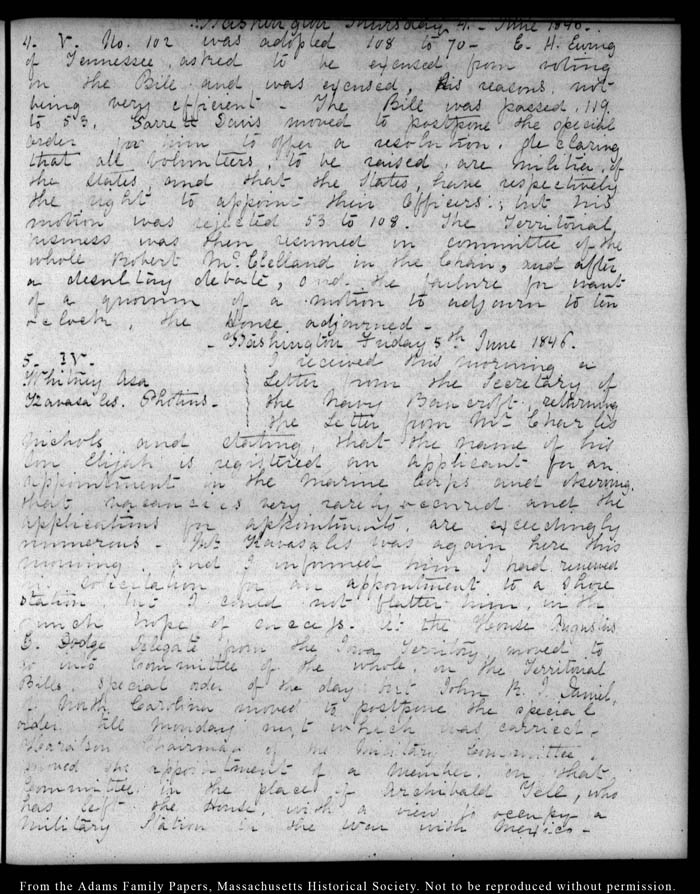 Washington Thursday 4. June 1846.
4. V. No. 102 was adopted 108 to 70 - E. H. Ewing
of Tennessee, asked to be excused from voting
on the Bill and was excused, his reasons not
being very efficient - The Bill was passed, 119
to 53. Garrett Davis moved to postpone the special
order for him to offer a resolution, declaring
that all volunteers, to be raised, are militia of
the States and that the States, have respectively
the right to appoint their Officers; but his
motion was rejected 53 to 108. The Territorial
business was then resumed in committee of the
whole Robert McClelland in the Chair, and after
a desultory debate, and the failure for want
of a quorum of a motion to adjourn to ten
o'clock, the House adjourned -
Washington Friday 5th June 1846.
5. IV. I received this morning a
Whitney Asa Letter from the Secretary of
Kavasales. Photius - the Navy Bancroft, returning
the Letter from Mr Charles
Nichols and stating, that the name of his
Son Elijah is registered an applicant for an
appointment in the Marine Corps and observing,
that vacancies very rarely occurred and the
applications for appointments, are exceedingly
numerous - Mr Kavasales was again here this
morning and I informed him I had renewed
solicitation for an appointment to a shore
station but I could not flatter him, in the
much hope of success. At the House Augustus
C. Dodge Delegate from the Iowa Territory, moved to
go into Committee of the whole, on the Territorial
Bills, Special order of the day but John R. J. Daniel,
of North Carolina moved to postpone the special
order till Monday next which was carried -
Haralson Chairman of the Military Committee
moved the appointment of a member, on that
Committee in the place of Archibald Yell, who
has left the House, with a view to occupy a
Military Station in the war with Mexico -
From the Adams Family Papers, Massachusetts Historical Society. Not to be reproduced without permission.